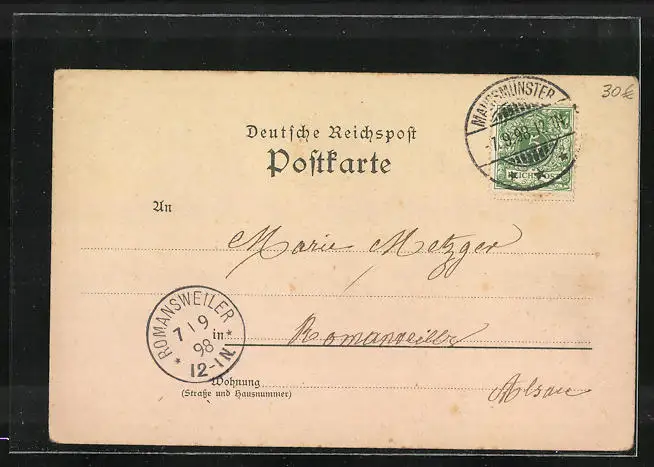 30 €
MAURSMÜNSTER
-7.9.98.12-1N.
REICHSPOST
Deutsche Reichspost
Postkarte
An
Marie Metzger
ROMANSWEILER
7 9
98
* 12-1N. *
in
Romansweiler
Wohnung
(Straße und Hausnummer)
Alsace